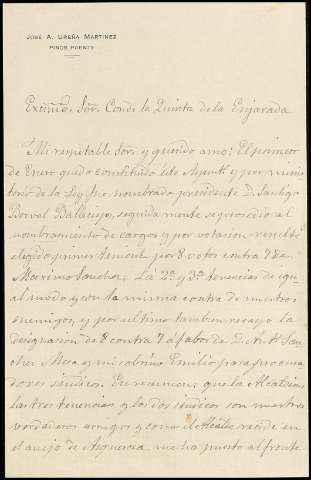 JOSÉ A. UREÑA MARTINEZ
PINOS PUENTE
Excmo. Sor. Conde la Quinta de la Enjarada
Mi respetable Sor. y querido amo: El primero
de Enero quedo constituido éste Ayunt. y por minis
terio de la Ley fue nombrado presidente D. Santiago
Ballesteros, seguidamente se procedió al
nombramiento de cargos y por votacion resulté
elegido primer teniente por 8 votos contra 7 de
Maximo Sanchez. La 2ª y 3ª tenencias de igu
al modo y con la misma contra de nuestros
enemigos, y por ultimo tambien recayó la
designación de 8 contra 7 á fabor de D. Antº San
chez Mesa y mi sobrino Emilio para procura
dores sindicos. En resumen, que la Alcaldia,
las tres tenencias y los dos sindicos son nuestros
verdaderos amigos y como el Alcalde reside en
el anejo de me ha puesto al frente